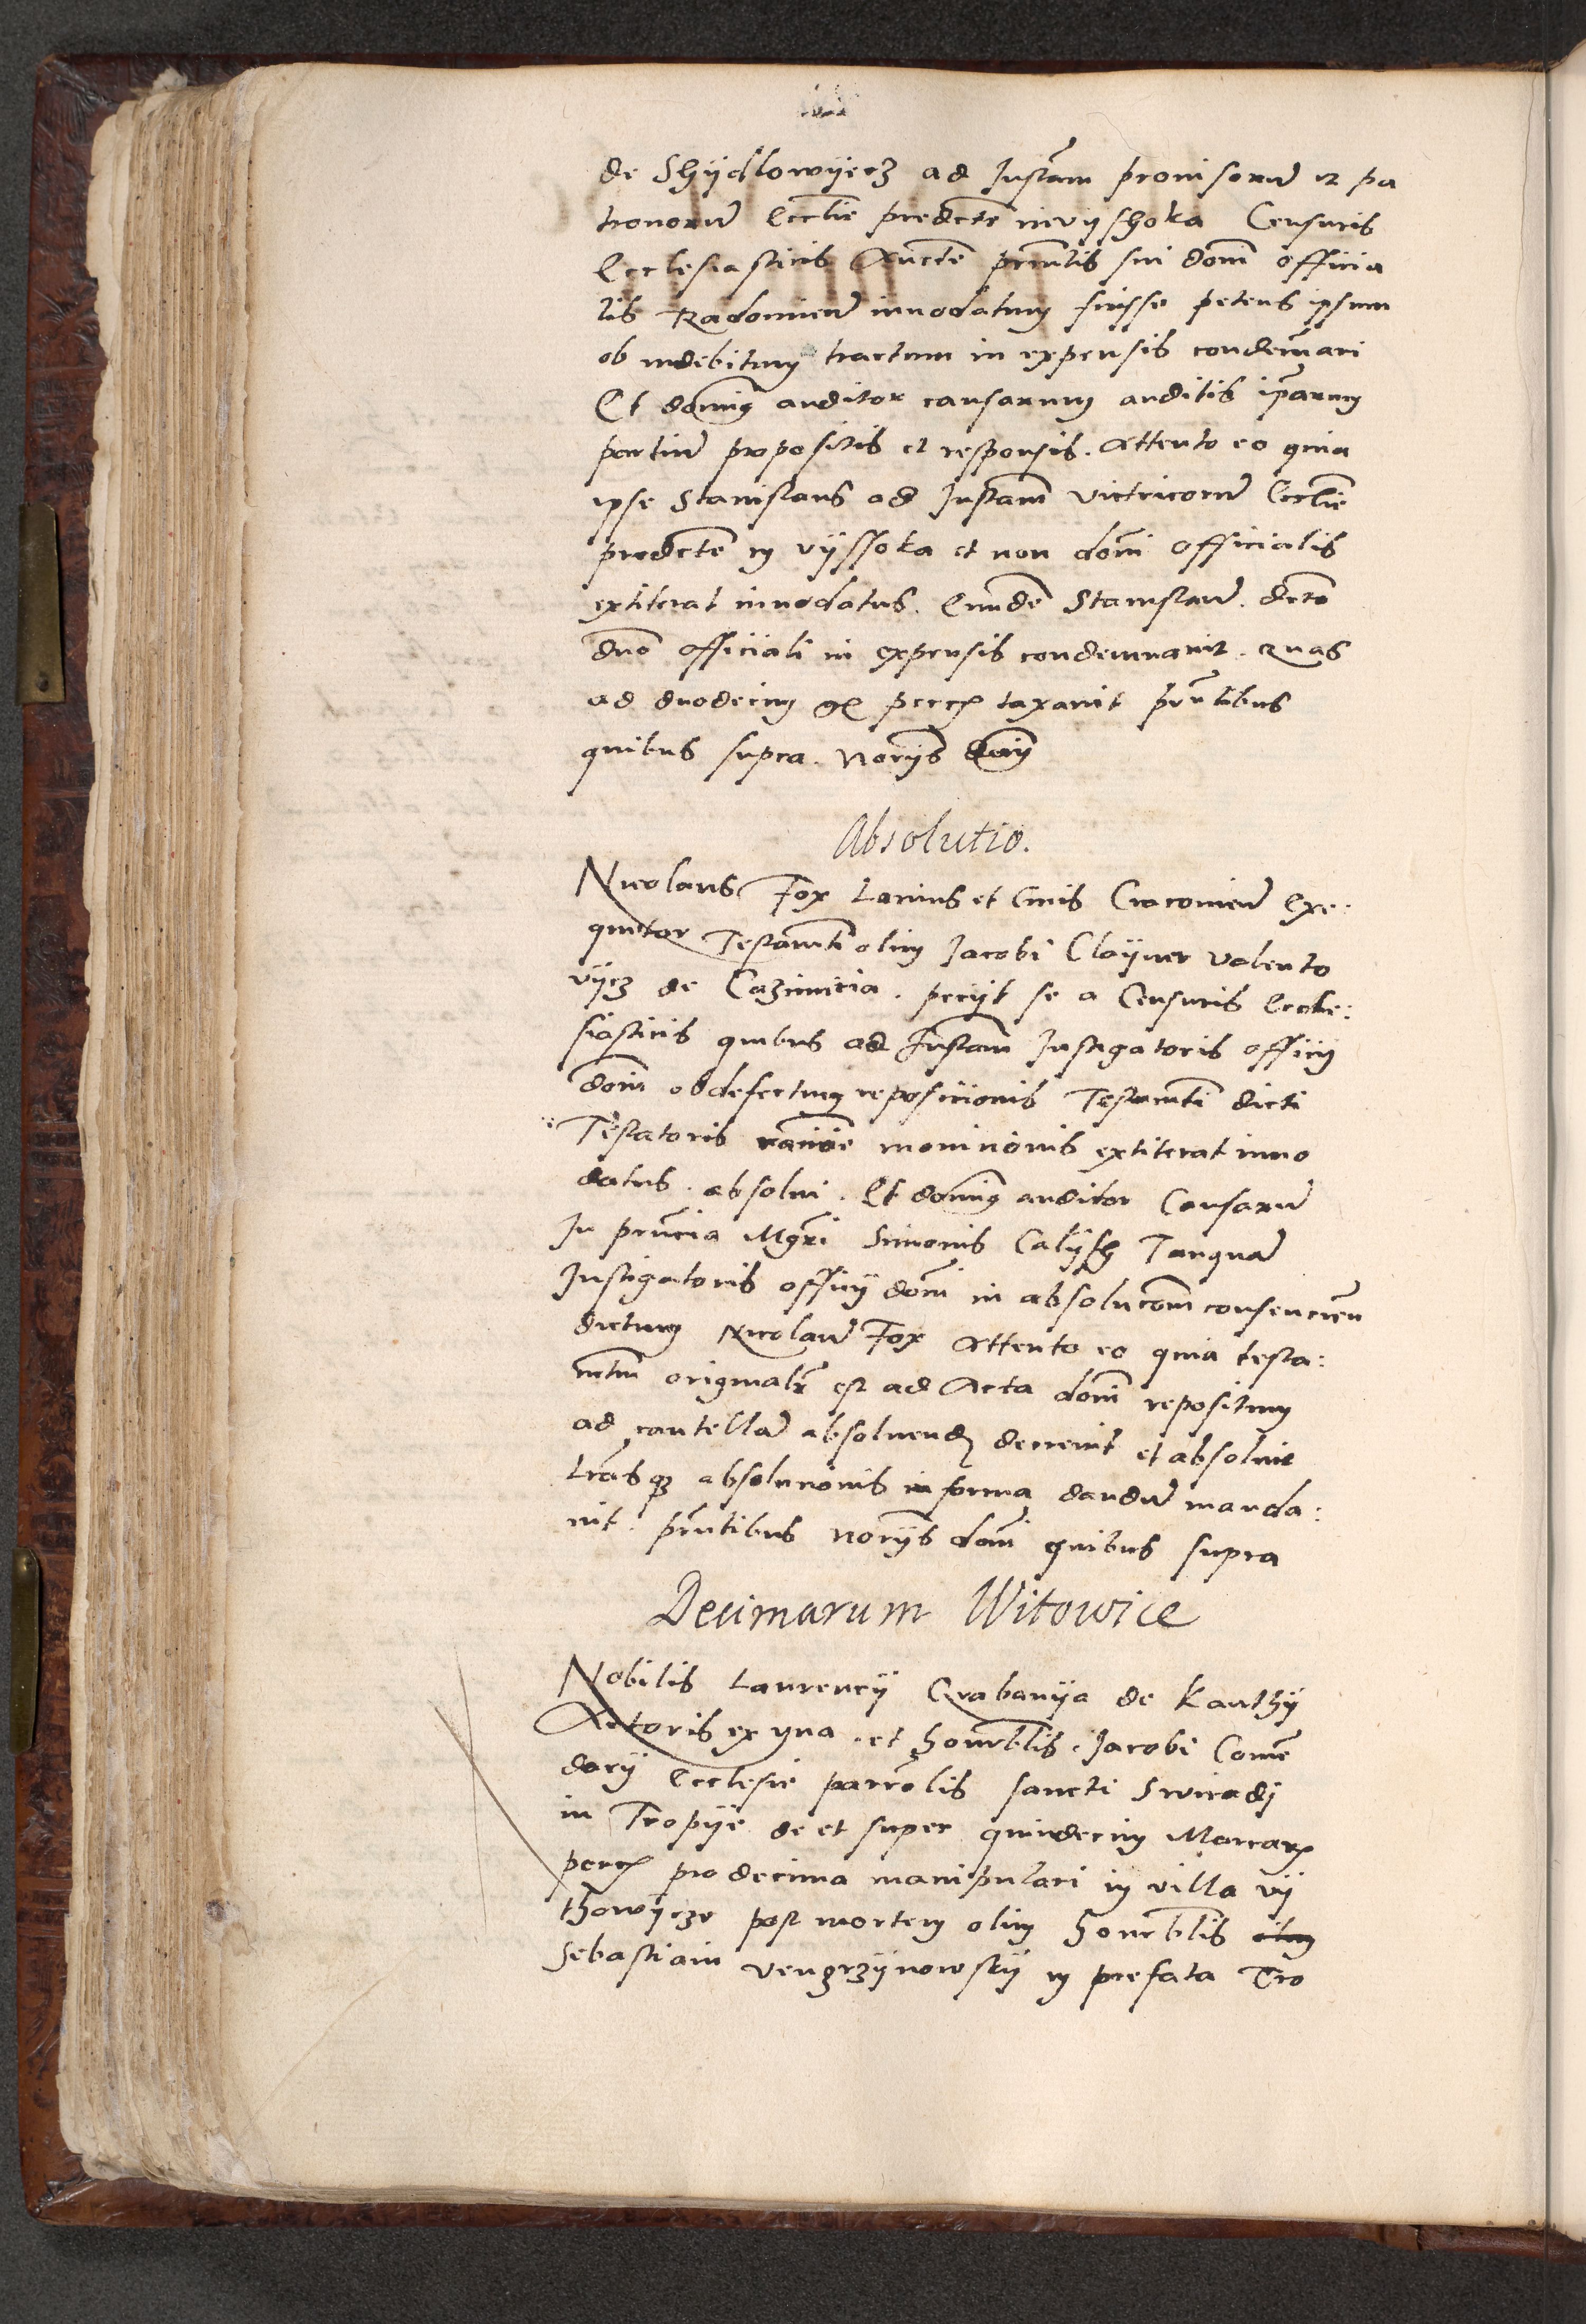 de Shÿdlowÿecz ad Instam̄ provisorū et pa
tronorū Ecclīe predcte in vÿshoka Censuris
Ecclesiasticis Auctē pn̄tis sui domī officia
lis Radomien̄ innodatum fuisse petens ipsum
ob indebitum tractum in expensis condem̄nari
Et domin9 auditor causarum auditis ip̄arum
partiū propositis et responsis. Attento eo quia
ipse Stanislaus ad Instam̄ victricorū Ecclīe
predcte in vÿssoka et non domī officialis
extiterat innodatus. Eundē Stanislaū. dicto
dn̄o officiali in expensis condemnavit. quas
ad duodecim gr pecc taxavit pn̄tibus
quibus supra. norÿs domī
Absolutio.
Nicolaus Fox Lanius et Civis Cracovien̄ Exe:
quutor Testamt̄i olim Jacobi Clayner valento
vÿcz de Cazimiria. pecÿt se a Censuris Eccle:
siasticis quibus ad Instam̄ Instigatoris officÿ
domī ob defectum reposicionis Testamt̄i dicti
Testatoris racione monicionis extiterat inno
datus. absolvi. Et domin9 auditor Causarū
In pn̄cia Mgr̄i Simonis Calÿsh Tanquā
Instigatoris officÿ domī in absolucōm consencien̄
dictum Nicolaū Fox Attento eo quia testa:
mtm̄ originalr̄ est ad Acta domī repositum
ad cautellā absolvend decrevit et absolvit
Lrasq3 absolucionis in forma dandū manda:
vit. pn̄tibus norÿs domī quibus supra
Decimarum Witowice
Nobilis Laurencÿ Grabanÿa de Kanthÿ
Actoris ex una. et honorblis. Jacobi Comē
darÿ Ecclesie parrolis sancti Swiradj
in Tropÿe de et super quindecim Marcarȝ
pecc pro decima manipulari in villa vÿ
thowÿcze post mortem olim honorblis olim
Sebastiani vengrzÿnowskÿ in prefata Tro